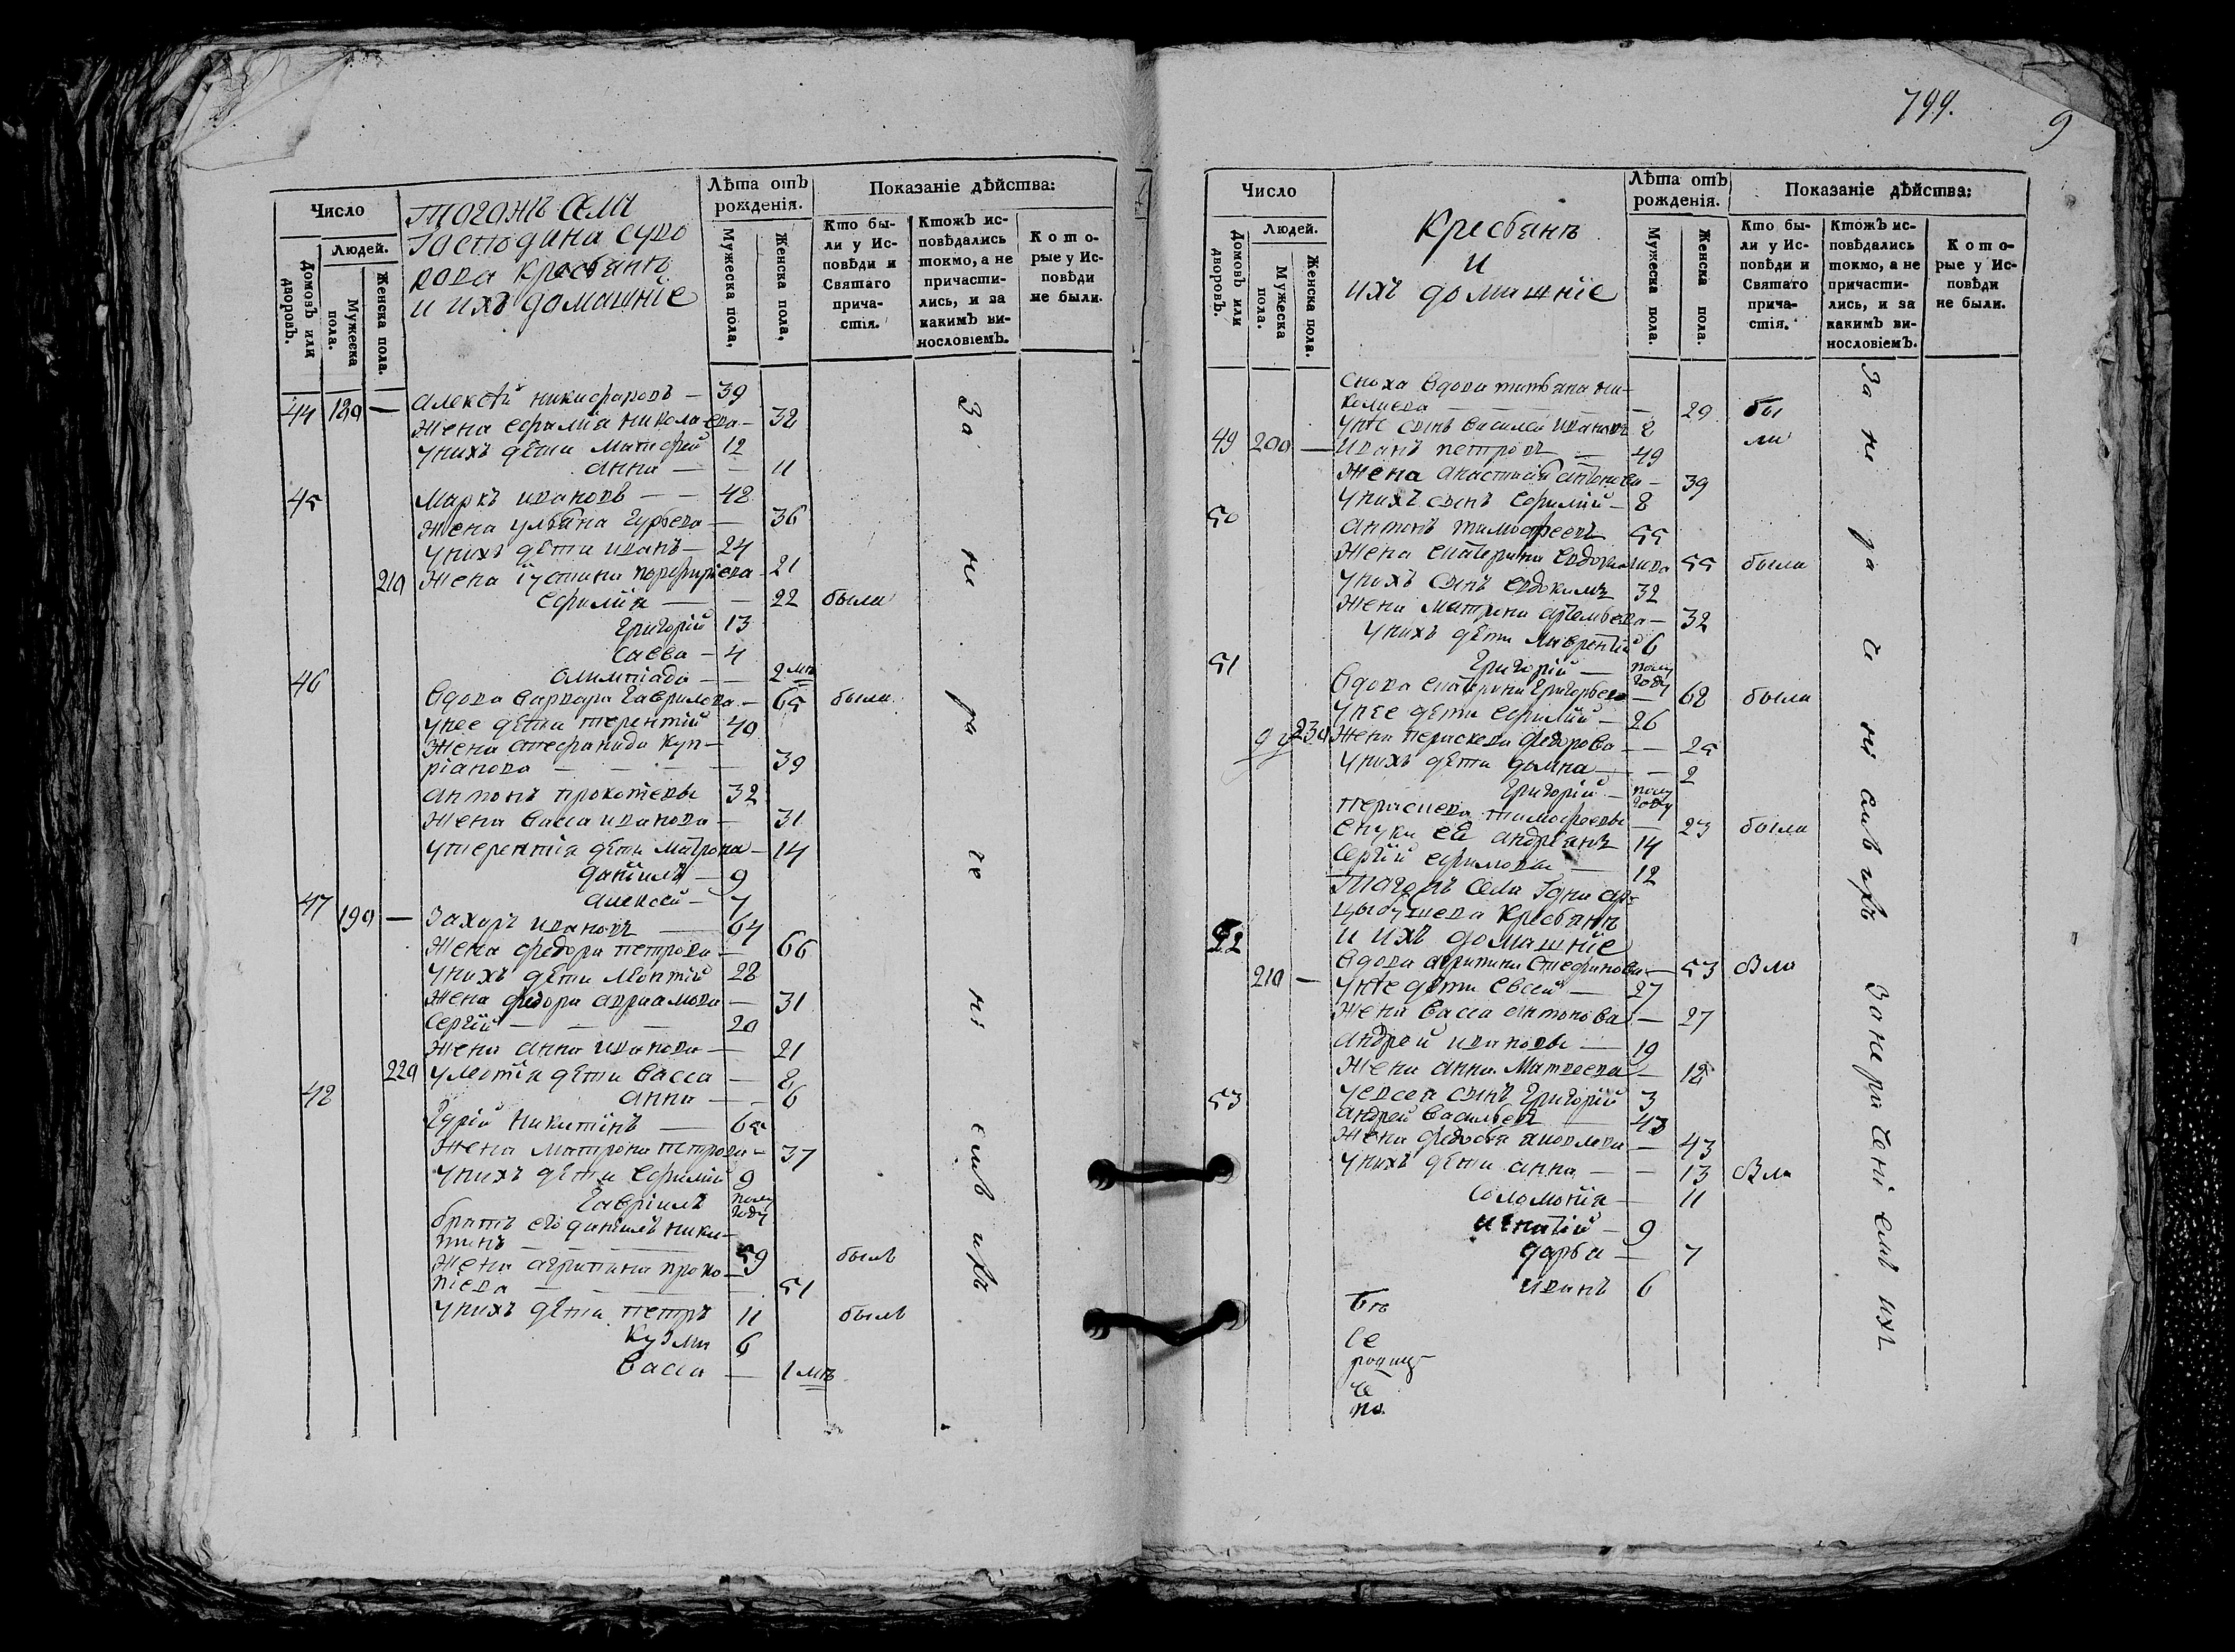 Число
Людей.
Домовъ или дворовъ.
Мужеска пола.
Женска пола.
тогожъ села
Господина суво
рова кресьянъ
и ихъ домашнїе
Лѣта отъ рожденія.
Мужеска пола,
Женска пола,
Показаніе дѣйства:
Кто бы-
ли у Ис-
повѣди и
Святаго
прича-
стія.
Ктожъ ис-
повѣдались
токмо, а не
причасти-
лись, и за
какимъ ви-
нословіемъ.
Кото-
рые у Ис-
повѣди
не были.
44 180 — алексѣй никифоровъ — 39
жена ефимїя николаева — 32
у нихъ дѣти матфей 12
анна — — 11
45 Маркъ ивановъ — — 42
жена ульяна гурьева — 36
у нихъ дѣти иванъ — 24
210 жена їустина порфирїева 21
ефимїя — — 22 была
григорїй 13
савва — 4
олимпїада — 2 мц
46 вдова варвара гаврилова — 65 была
у нее дѣти терентїй 40
жена стефанида куп-
рїанова — — — — 39
антонъ прокопїевы 32
жена васса иванова — 31
у терентїя дѣти матрона — 14
данїилъ — 9
алексѣй — 7
47 190 — захаръ ивановъ — 64
жена федора петрова — 66
у нихъ дѣти леонтїй 28
жена федора авраамова — 31
сергїй — — — 20
жена анна иванова — 21
220 у леонтїя дѣти васса — 8
анна — — 6
48 гурїй никитинъ — 65
жена матрона петрова — 37
у нихъ дѣти ефимїй 9
гаврїилъ полу году
братъ его данїилъ ники-
тинъ — — — 59 былъ
жена агрипина проко-
пїева — — — 51
у нихъ дѣти петръ 11 былъ
кузма 6
васса — 1 мц
за не ра че нї емъ ихъ
799.
9
Число
Людей.
Домовъ или дворовъ.
Мужеска пола.
Женска пола.
Кресьянъ
и
ихъ домашнїе
Лѣта отъ рожденія.
Мужеска пола.
Женска пола.
Показаніе дѣйства:
Кто бы-
ли у Ис-
повѣди и
Святаго
прича-
стія.
Ктожъ ис-
повѣдались
токмо, а не
причасти-
лись, и за
какимъ ви-
нословіемъ.
Кото-
рые у Ис-
повѣди
не были.
сноха вдова татьяна ни-
колаева — — 29 бы
у нее сынъ василей ивановъ 8 ли
49 200 — иванъ петровъ — 49
жена анастасїя антонова — 39
у нихъ сынъ ефимїй — 8
50 антонъ тимофеевъ 55
жена екатерина евдокимова 55 была
у нихъ сынъ евдокимъ 32
жена матрона артемьева — 32
у нихъ дѣти лаврентїй 6
григорїй — полу году
51 вдова екатерина григорьева — 62 была
у нее дѣти ефимїй — 26
230 жена параскева федорова — — 25
у нихъ дѣти домна — — 2
григорїй — полу году
параскева тимофеева — 23 была
внуки ея андрїанъ 14
сергїй ефимовы — 12
тогожъ села
кресьянъ
и ихъ домашнїе
52 вдова агрипина стефанова — 53 бла
210 — у нее дѣти евсей — 27
жена васса антонова — 27
андрей ивановы — 19
жена анна матвеева — 18
у евсея сынъ григорїй 3
53 андрей васильевъ 43
жена федосья яковлева — 43
у нихъ дѣти анна — — 13 бла
соломонїя — 11
игнатїй — 9
дарья — 7
иванъ 6
за не ра че нї емъ ихъ
за нерачені емъ ихъ
бго
се